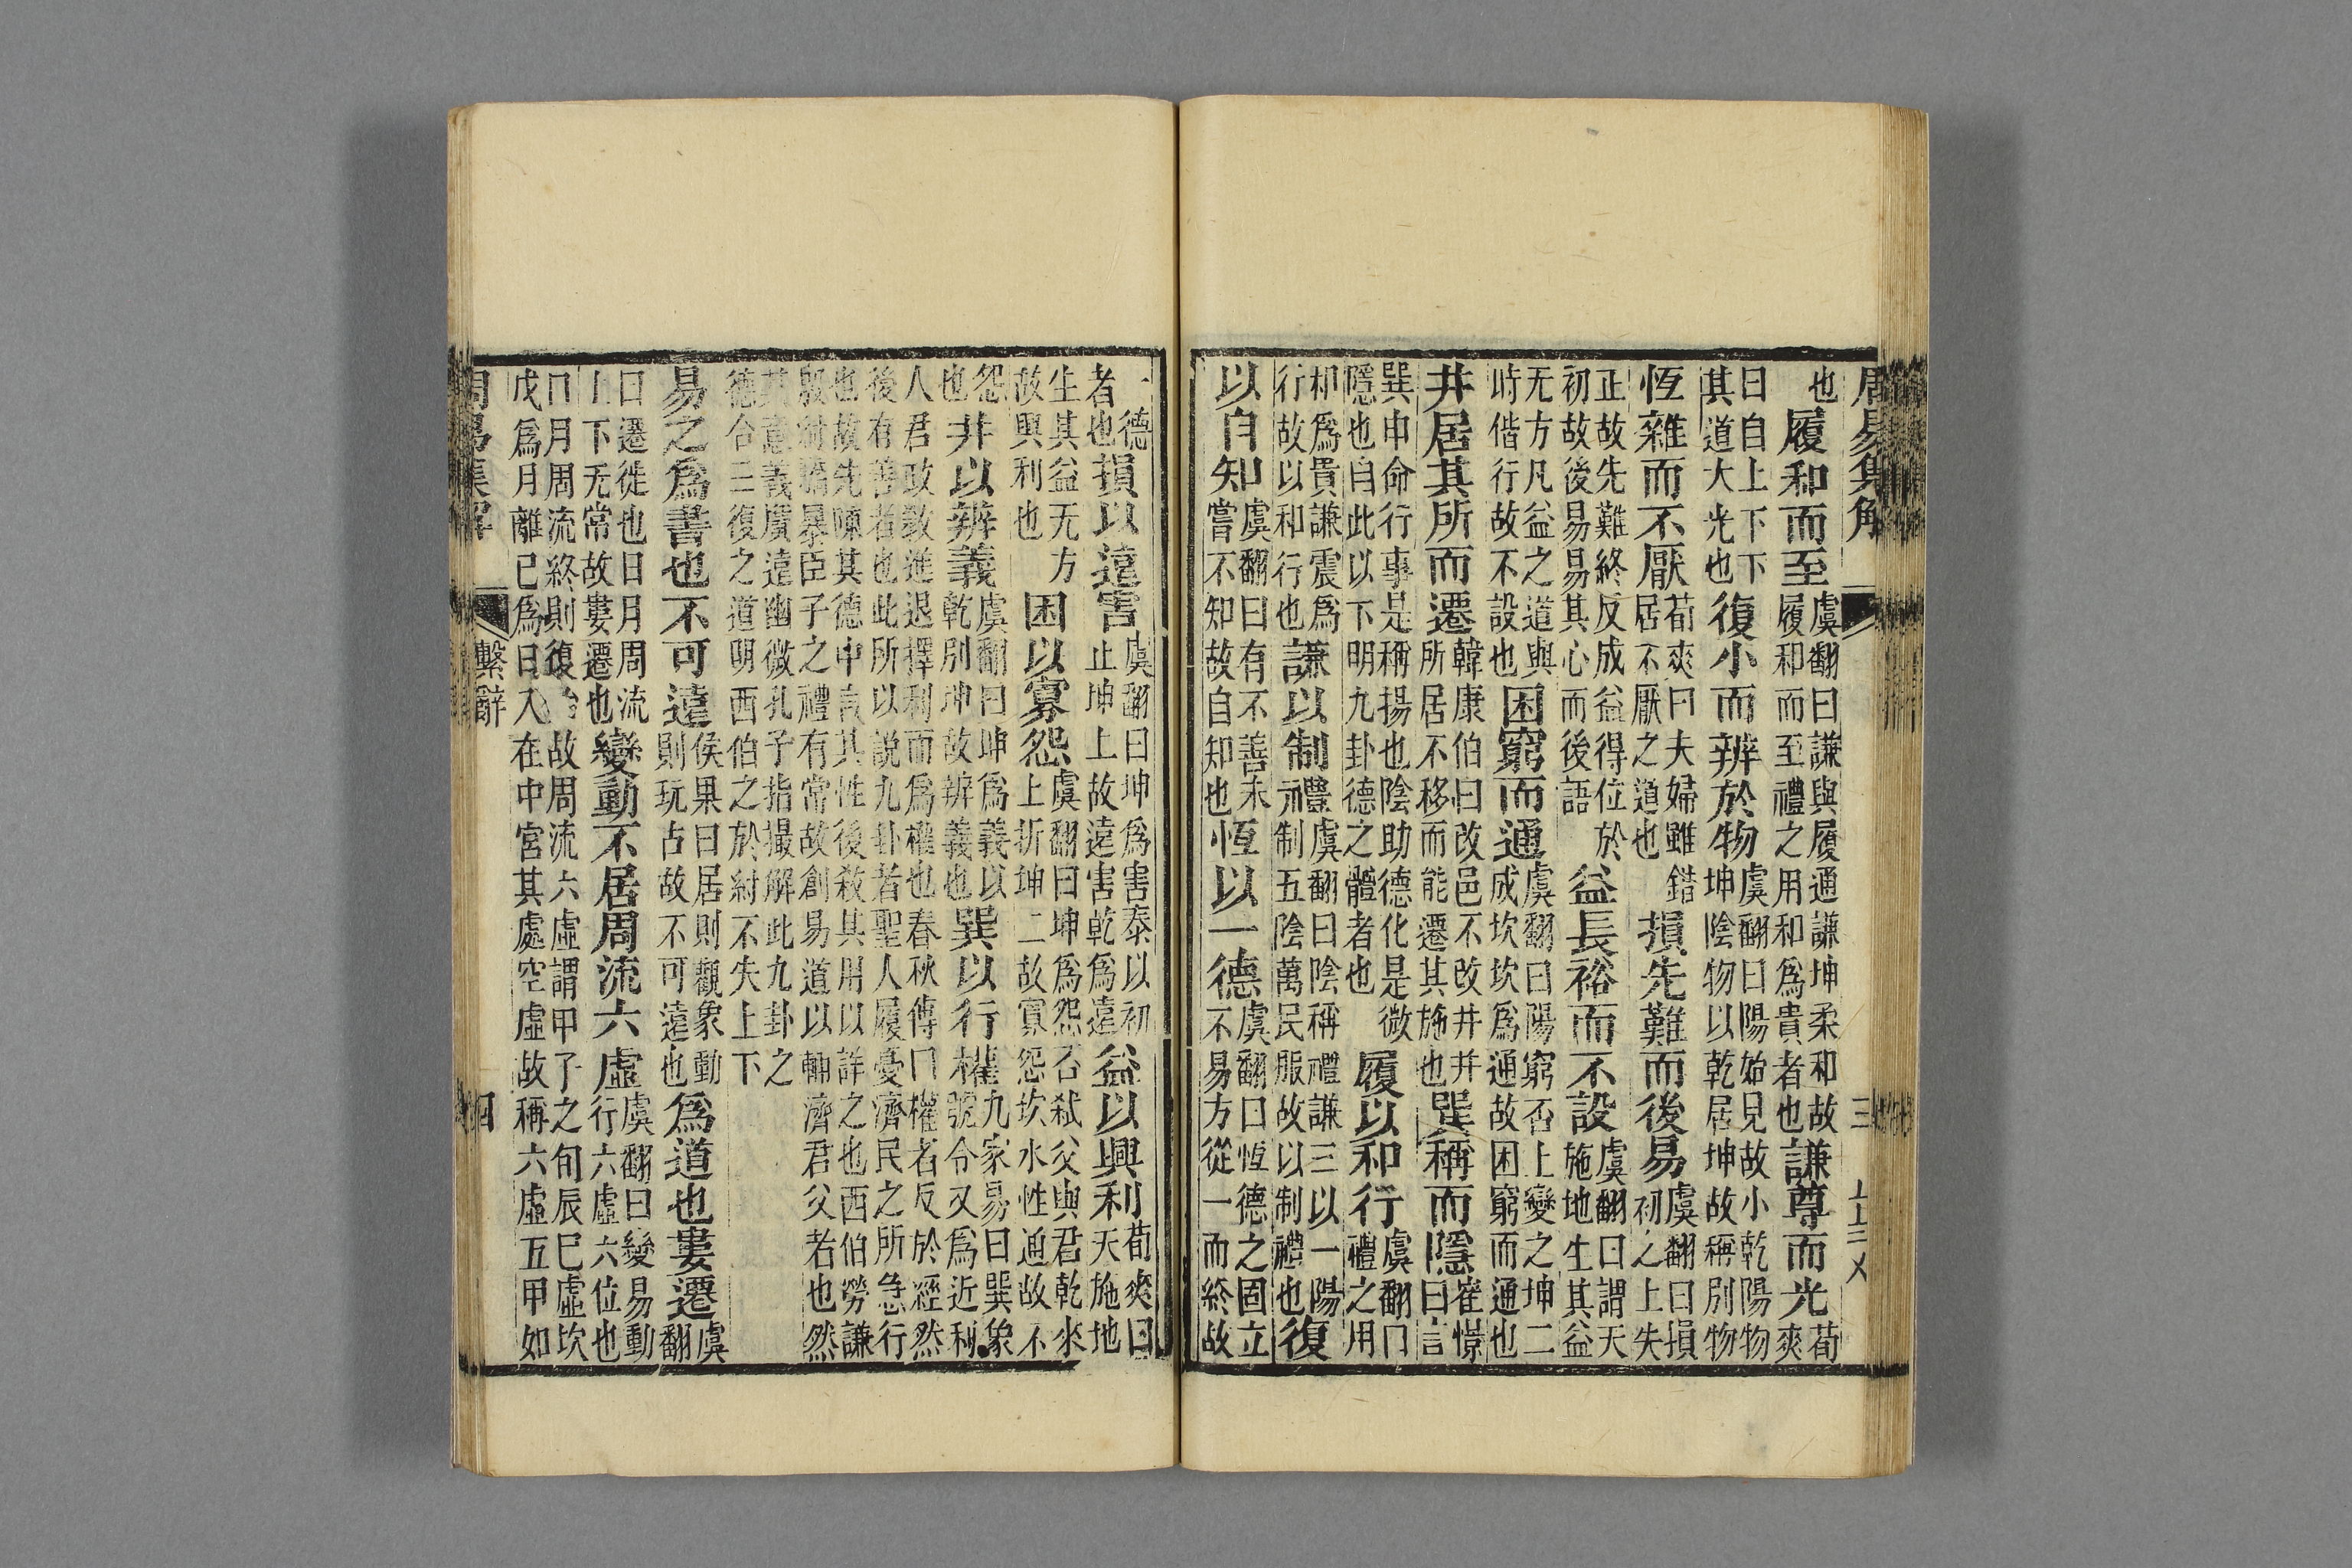 周易集解 三
也履和而至虞翻曰謙與履通謙坤柔和故履和而至禮之用和爲貴者也謙尊而光荀爽
曰自上下下其道大光也復小而辨於物虞翻曰陽始見故小乾陽物坤陰物以乾居坤故稱別物
恆雜而不厭荀爽曰夫婦雖錯居不厭之道也損先難而後易虞翻曰損初之上失
正故先難終反成益得位於初故後易易其心而後語益長裕而不設虞翻曰謂天施地生其益
无方凡益之道與時偕行故不設也困窮而通虞翻曰陽窮否上變之坤二成坎坎爲通故困窮而通也
井居其所而遷韓康伯曰改邑不改井井所居不移而能遷其施也巽稱而隱崔憬曰言
巽申命行事是稱揚也陰助德化是微隱也自此以下明九卦德之體者也履以和行虞翻曰禮之用
和爲貴謙震爲行故以和行也謙以制禮虞翻曰陰稱禮謙三以一陽制五陰萬民服故以制禮也復
以自知虞翻曰有不善未嘗不知故自知也恆以一德虞翻曰恆德之固立不易方從一而終故
一德者也損以遠害虞翻曰坤爲害泰以初止坤上故遠害乾爲遠益以興利荀爽曰天施地
生其益无方故興利也困以寡怨虞翻曰坤爲怨否弒父與君乾來上折坤二故寡怨坎水性通故不
怨也井以辨義虞翻曰坤爲義以乾別坤故辨義也巽以行權九家易曰巽象號令又爲近利
人君政敎進退擇利而爲權也春秋傳曰權者反於經然後有善者也此所以說九卦者聖人履憂濟民之所急行
也故先陳其德中言其性後敘其用以詳之也西伯勞謙殷紂驕暴臣子之禮有常故創易道以輔濟君父者也然
其意義廣遠幽微孔子指撮解此九卦之德合三復之道明西伯之於紂不失上下
易之爲書也不可遠侯果曰居則觀象動則玩占故不可遠也爲道也婁遷虞翻
曰遷徙也日月周流上下无常故婁遷也變動不居周流六虛虞翻曰變易動行六虛六位也
日月周流終則復始故周流六虛謂甲子之旬辰巳虛坎戊爲月離己爲日入在中宮其處空虛故稱六虛五甲如
周易集解 繫辭 四